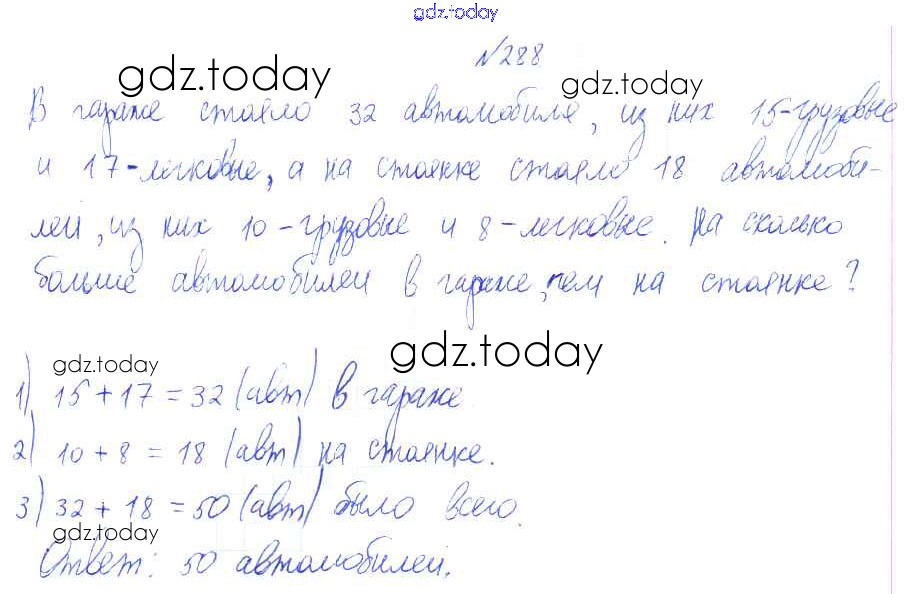 gdz.today
№288
gdz.today
gdz.today
В гараже стояло 32 автомобиля, из них 15-грузовые
и 17-легковые, а на стоянке стояло 18 автомоби-
лей, из них 10-грузовые и 8-легковые. На сколько
больше автомобилей в гараже, чем на стоянке?
gdz.today
gdz.today
1) 15+17=32 (авт) в гараже
2) 10+8=18 (авт) на стоянке.
3) 32+18=50 (авт) было всего.
gdz.today
Ответ: 50 автомобилей.